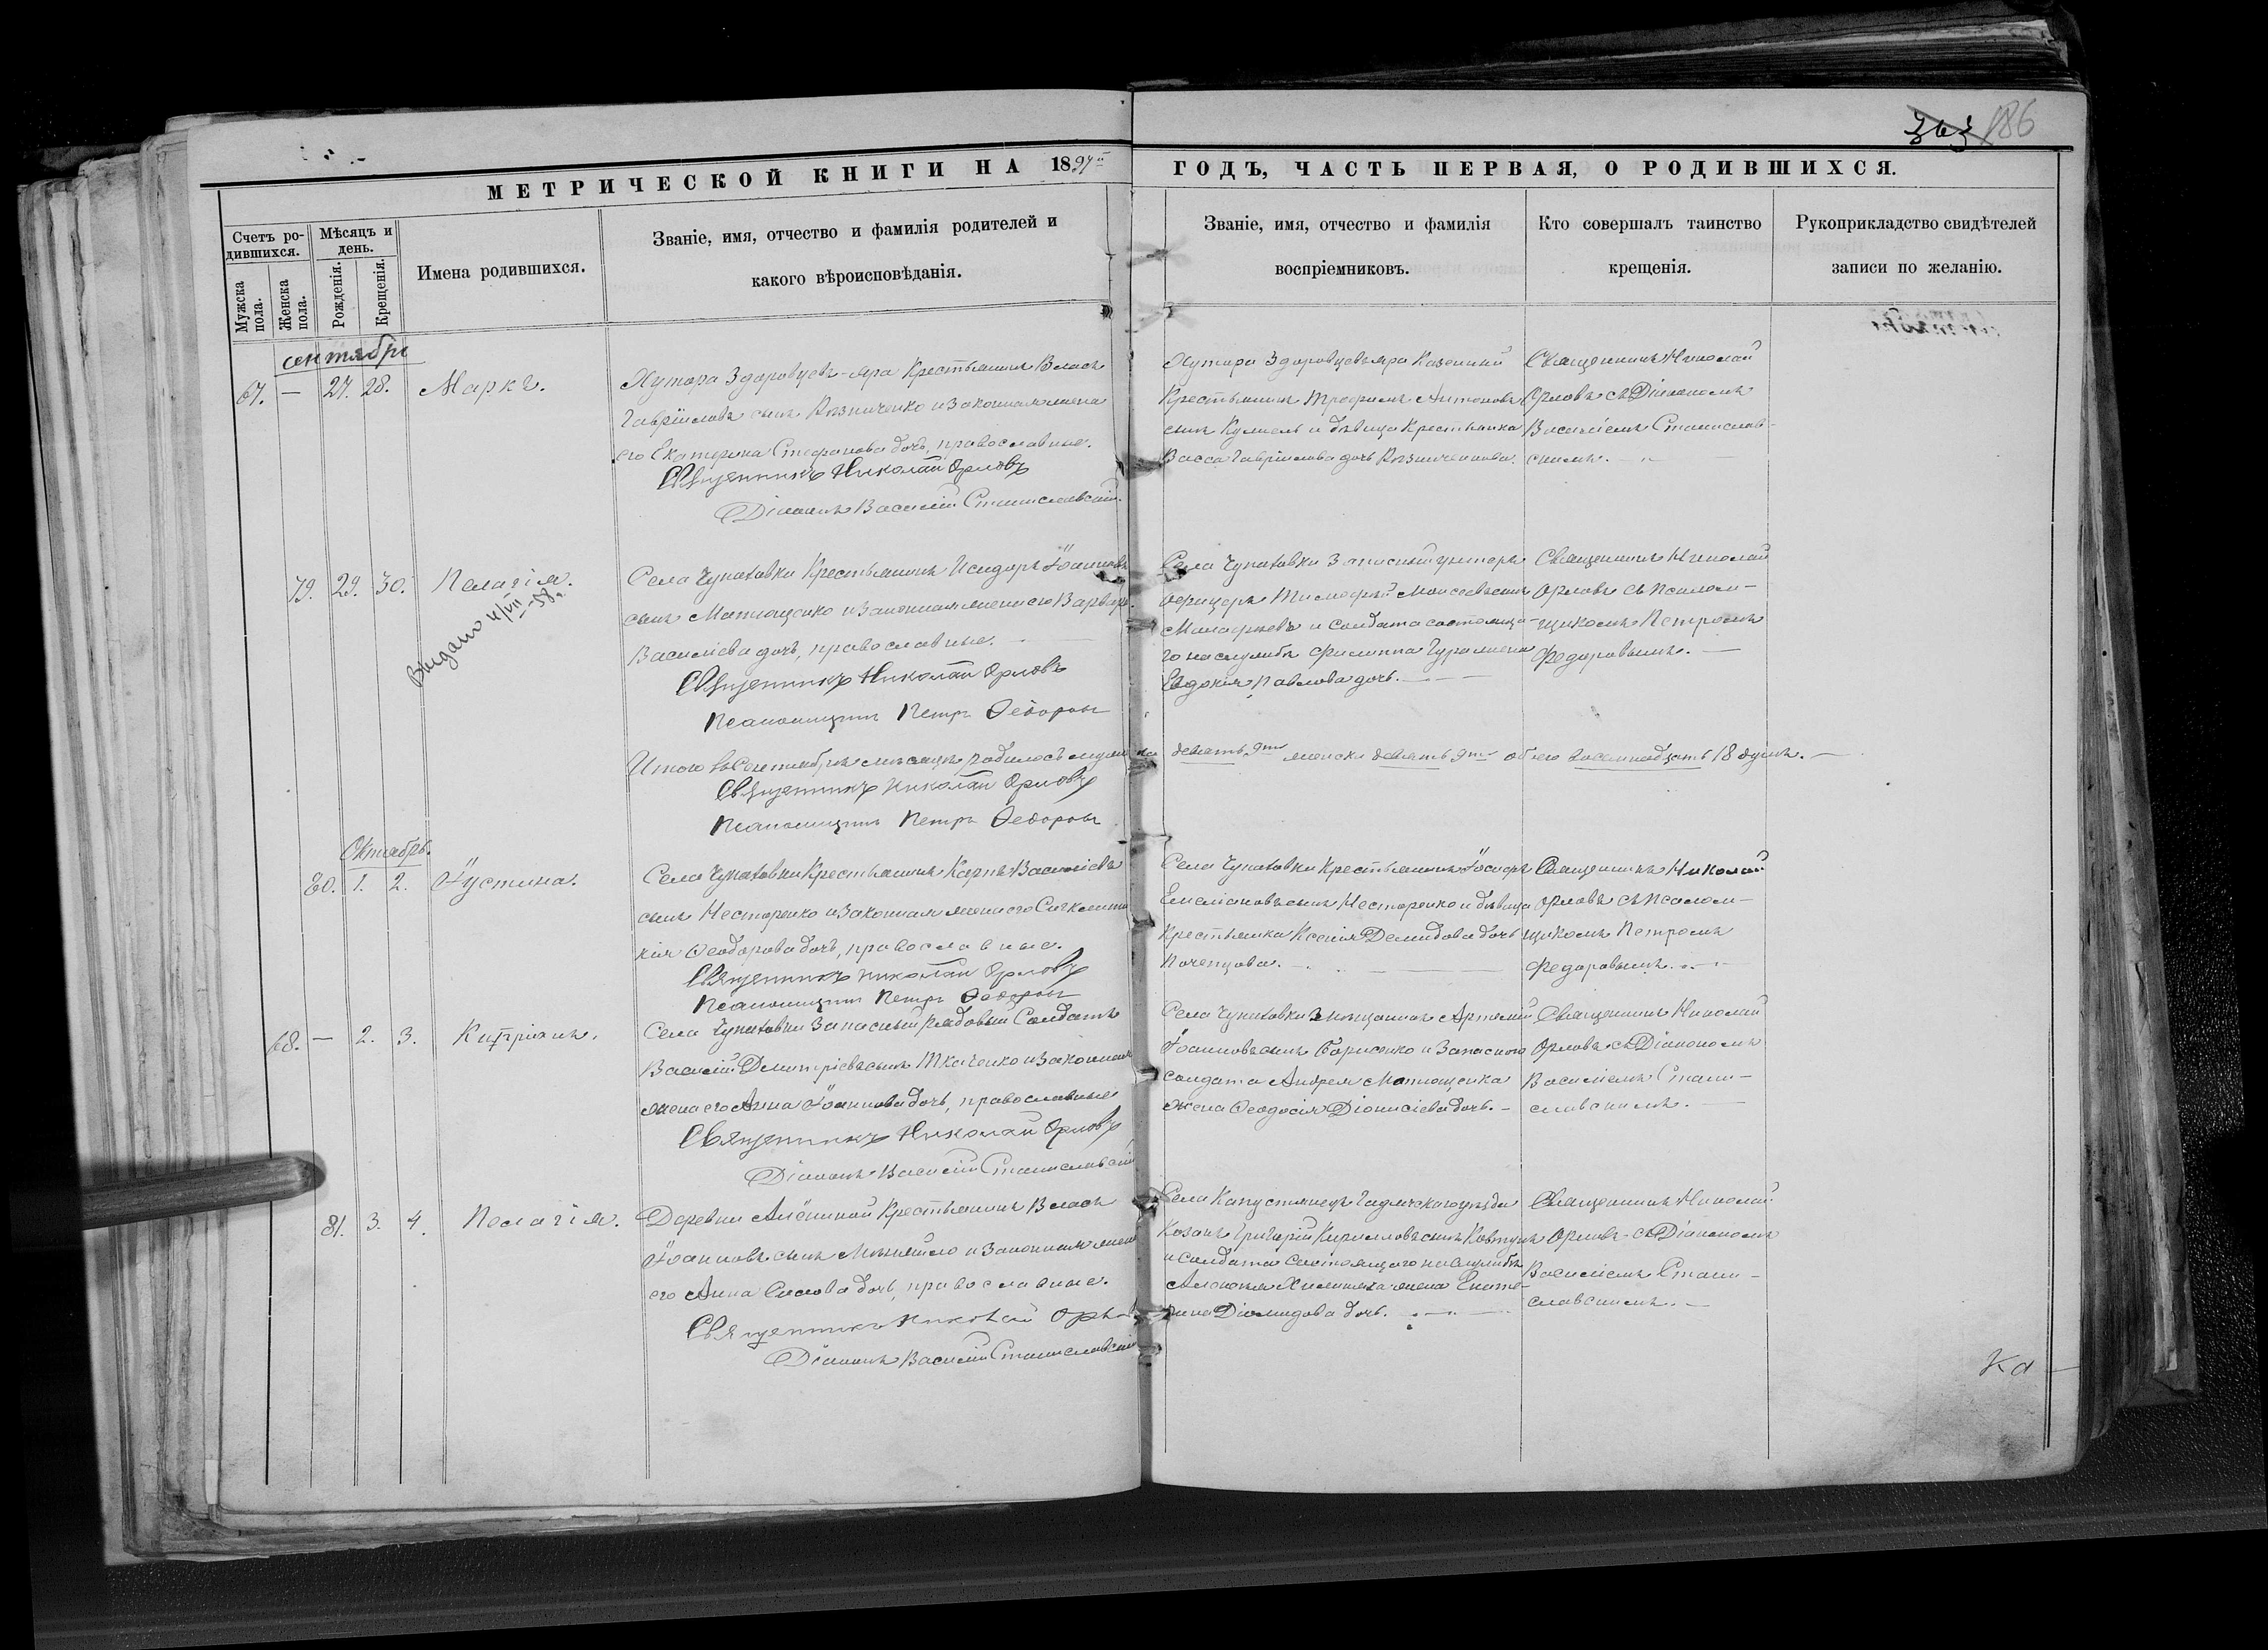 186
МЕТРИЧЕСКОЙ КНИГИ НА 1897й ГОДЪ, ЧАСТЬ ПЕРВАЯ, О РОДИВШИХСЯ.
Счетъ родившихся.
Мужска пола.
Женска пола.
Мѣсяцъ и день.
Рожденія.
Крещенія.
Имена родившихся.
Званіе, имя, отчество и фамилія родителей и
какого вѣроисповѣданія.
Званіе, имя, отчество и фамилія
воспріемниковъ.
Кто совершалъ таинство
крещенія.
Рукоприкладство свидѣтелей
записи по желанію.
сентябрь
67. — 27. 28. Маркъ.
Хутора Здоровцевъ-яра Крестьянинъ Власъ
Гавріиловъ сынъ Рѣзниченко и законная жена
его Екатерина Стефанова дочь, православные.
Священникъ Николай Орловъ
Діаконъ Василій Станиславскій.
Хутора Здоровцевъ яра Казенный
Крестьянинъ Трофимъ Антоновъ
сынъ и дѣвица Крестьянка
Васса Гавріилова дочь Рѣзниченкова.
Священникъ Николай
Орловъ съ Діакономъ
Василіемъ Станислав-
скимъ.
79. 29. 30. Пелагія.
Выдано 4/VII-58г.
Села Чупаховки Крестьянинъ Исидоръ Іоанновъ
сынъ Матющенко и законная жена его Варвара
Василіева дочь, православные.
Священникъ Николай Орловъ
Псаломщикъ Петръ Ѳедоровъ
Села Чупаховки Запасный унтеръ
офицеръ Тимофей Моисеевъ сынъ
и солдата состояща-
го на службѣ Филиппа жена
Евдокія Павлова дочь.
Священникъ Николай
Орловъ съ Псалом-
щикомъ Петромъ
Федоровымъ.
Итого въ Сентябрѣ мѣсяцѣ родилось мужска девять 9ть женска девять 9ть обоего восемнадцать 18 душъ.
Священникъ Николай Орловъ
Псаломщикъ Петръ Ѳедоровъ
Октябрь.
80. 1. 2. Іустина.
Села Чупаховки Крестьянинъ Карпъ Василіевъ
сынъ Нестеренко и законная жена его Сигклити
кія Ѳеодорова дочь, православные.
Священникъ Николай Орловъ
Псаломщикъ Петръ Ѳедоровъ
Села Чупаховки Крестьянинъ Іосифъ
Емеліановъ сынъ Нестеренко и дѣвица
Крестьянка Ксенія Демидова дочь
Почепцова.
Священникъ Николай
Орловъ съ Псалом-
щикомъ Петромъ
Федоровымъ.
68. — 2. 3. Кипріанъ.
Села Чупаховки Запасный рядовый Солдатъ
Василій Димитріевъ сынъ Ткаченко и законная
жена его Анна Іоаннова дочь, православные
Священникъ Николай Орловъ
Діаконъ Василій Станиславскій
Села Чупаховки Мѣщанинъ Артемій
Іоанновъ сынъ Борисенко и Запаснаго
солдата Андрея Матющенка
жена Ѳеодосія Діонисіева дочь.
Священникъ Николай
Орловъ съ Діакономъ
Василіемъ Стани-
славскимъ.
81. 3. 4. Пелагія.
Деревни Крестьянинъ Власъ
Іоанновъ сынъ и законная жена
его Анна дочь, православные.
Священникъ Николай Орловъ
Діаконъ Василій Станиславскій
Села Капустинецъ Гадячскаго уѣзда
Козакъ Григорій Кирилловъ сынъ Ковтунъ
и солдата состоящаго на службѣ
жена Екате-
рина Діомидова дочь.
Священникъ Николай
Орловъ съ Діакономъ
Василіемъ Стани-
славскимъ.